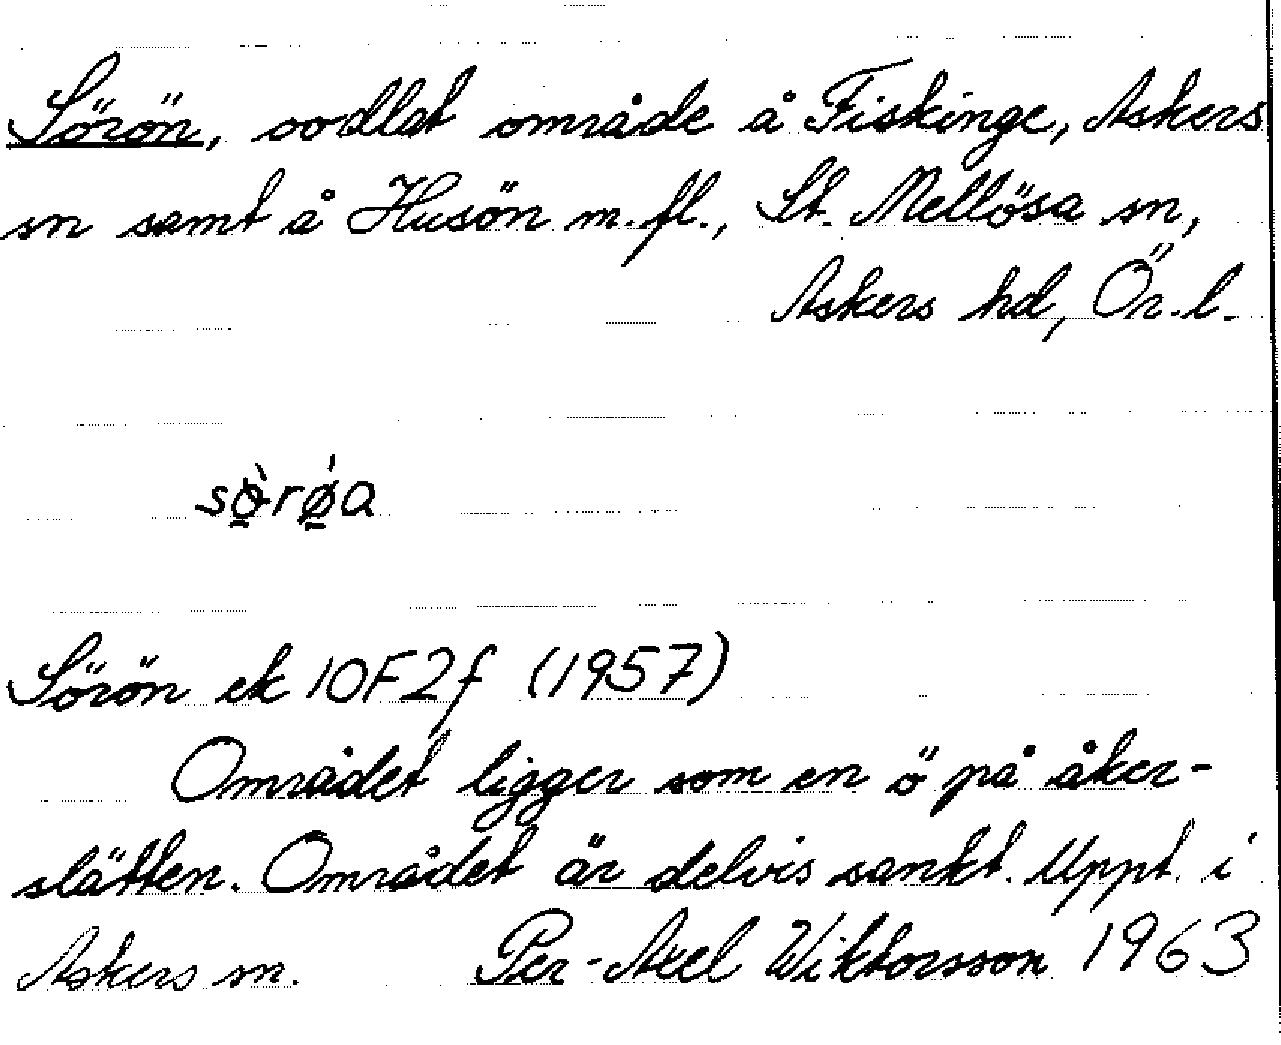 Sörön, oodlat område å Fiskinge, Askers
sn samt å Husön m.fl., St. Mellösa sn,
Askers hd, Ör.l.
sø̠̀rǿ̠a
Sörön ek 10F2f (1957)
Området ligger som en ö på åker-
slätten. Området är delvis sankt. Uppt. i
Askers sn. Per-Axel Wiktorsson 1963